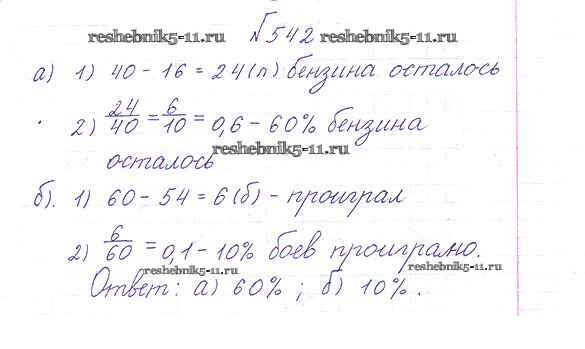 №542
reshebnik5-11.ru reshebnik5-11.ru
а) 1) 40 - 16 = 24 (л) бензина осталось
2) 24/40 = 6/10 = 0,6 - 60% бензина
осталось
reshebnik5-11.ru
б). 1) 60 - 54 = 6 (б) - проиграл
2) 6/60 = 0,1 - 10% боев проиграно.
reshebnik5-11.ru reshebnik5-11.ru
Ответ: а) 60% ; б) 10%.